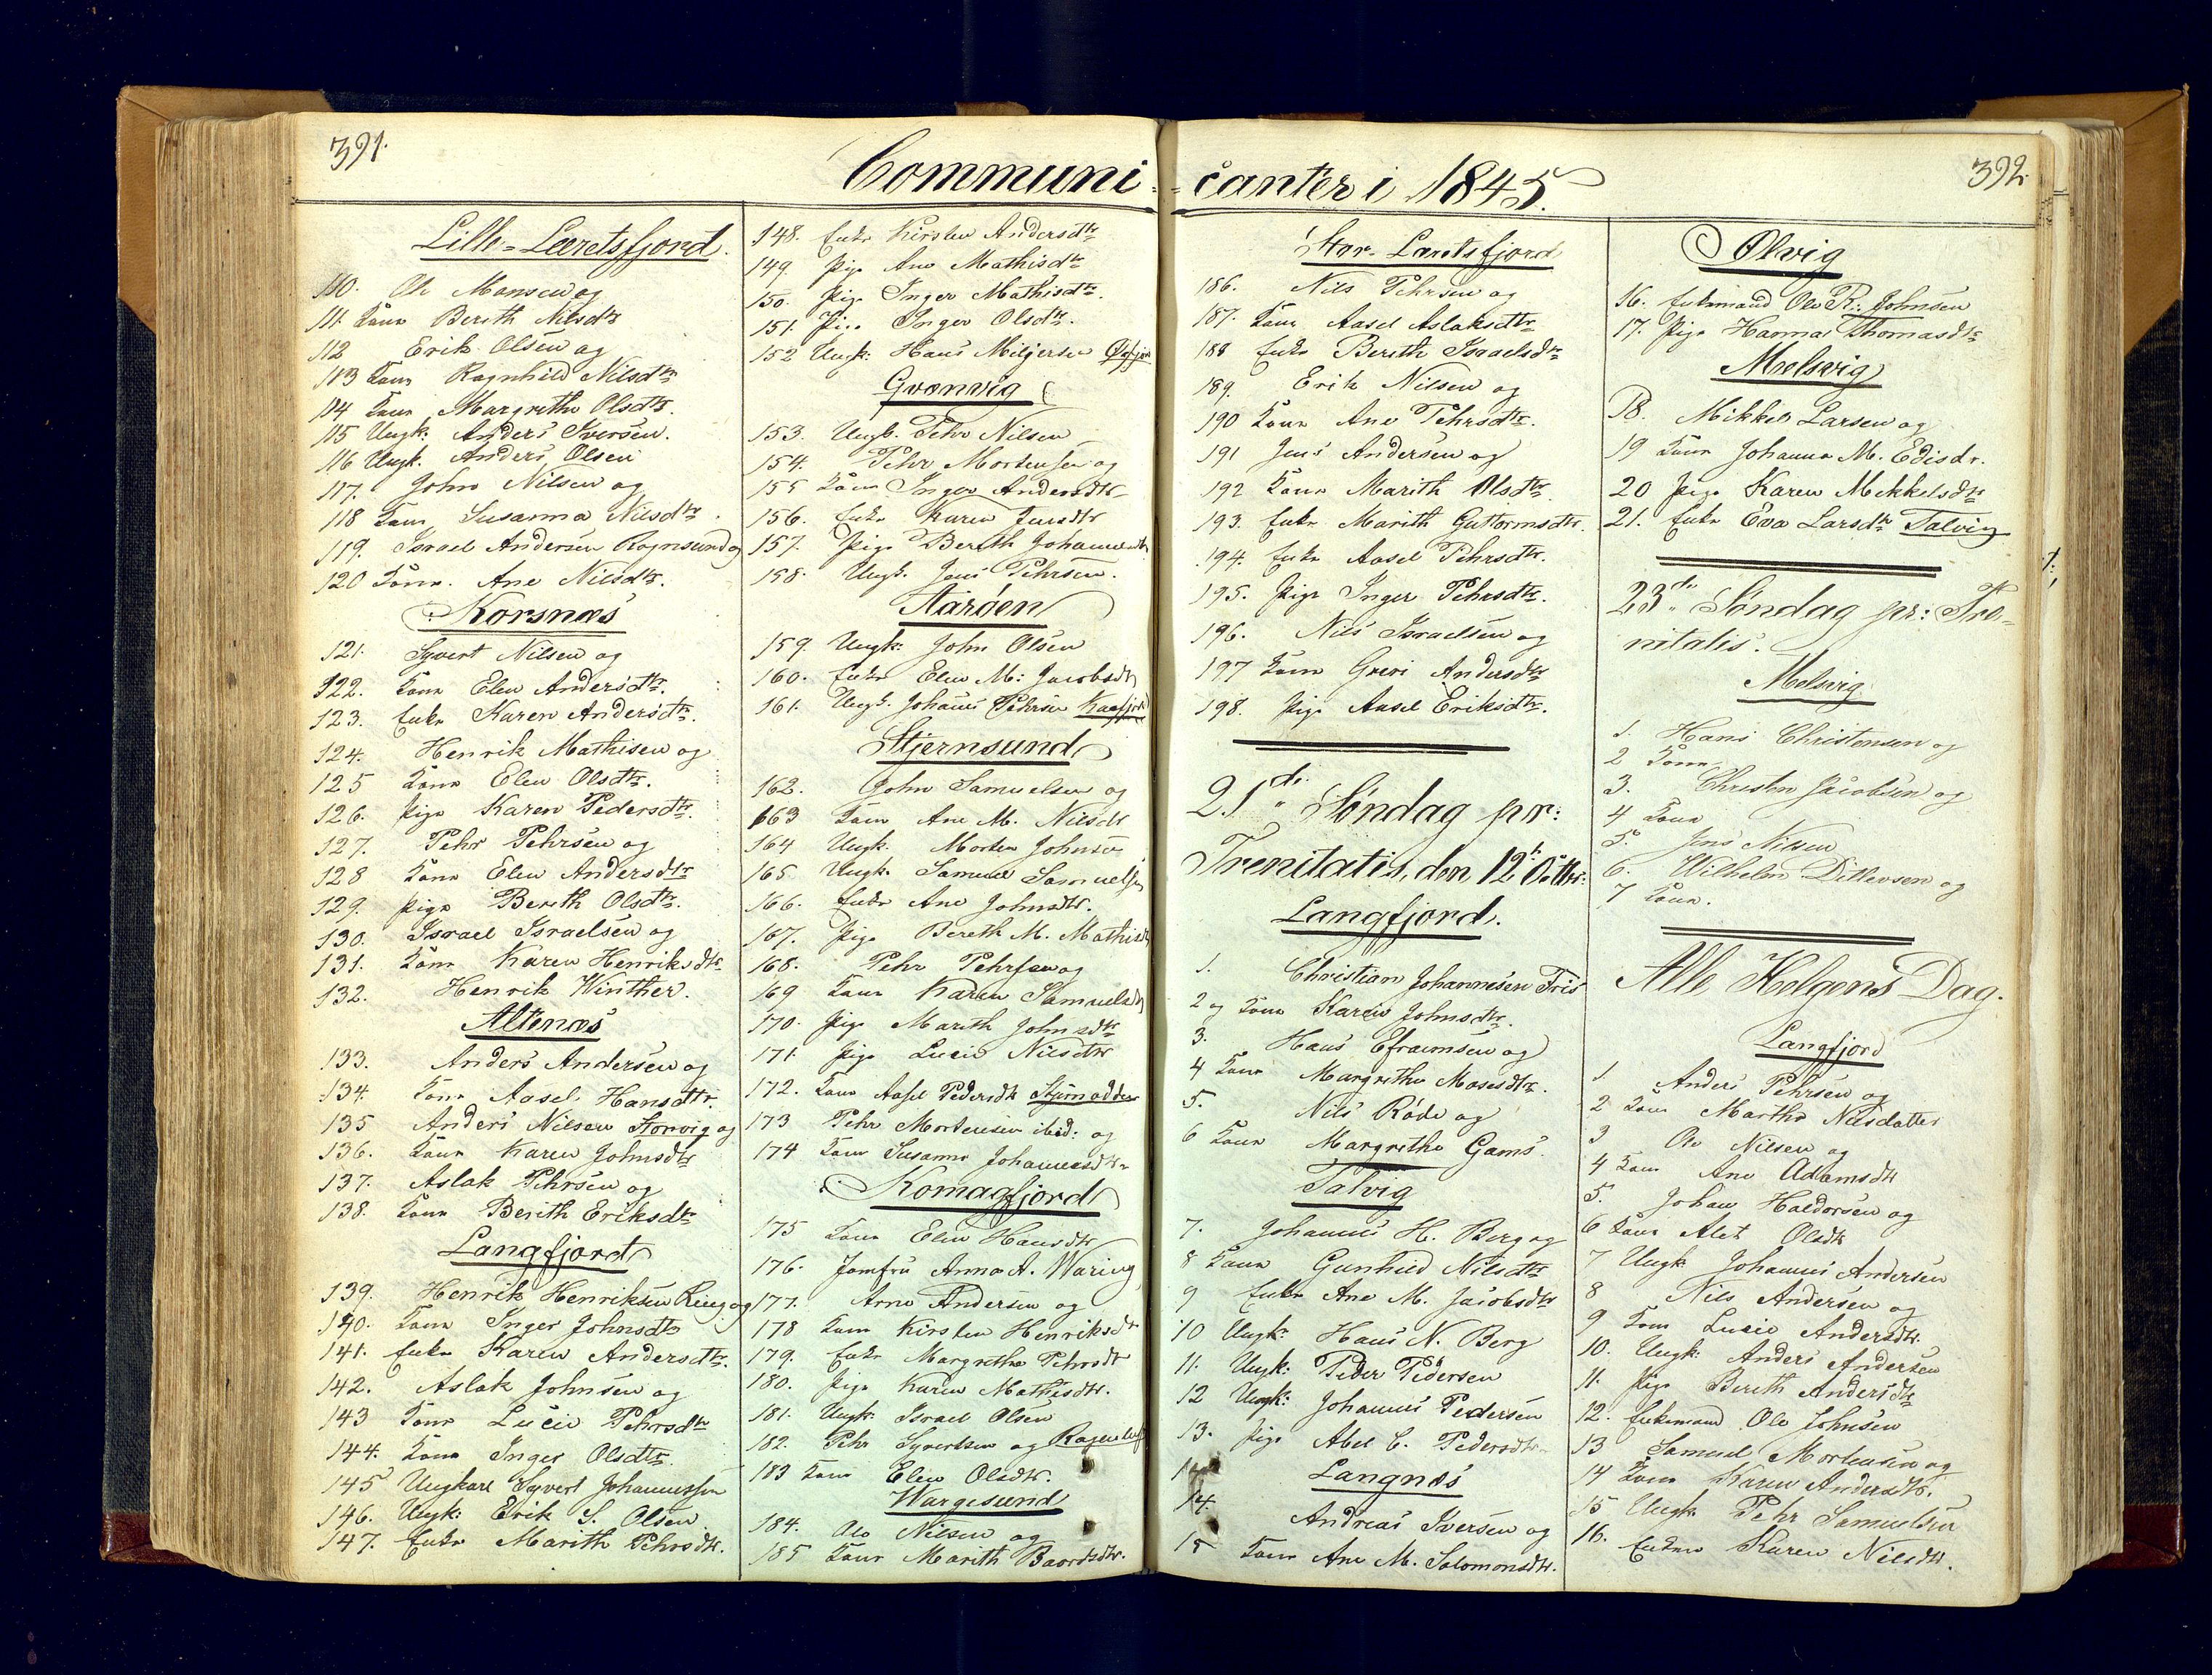 391.
Communi-
Lille-Leeretsfjord.
110. Ole Monsen og
111. Kone Berith Nilsdtr
112 Erik Olsen og
113 Kone Ragnhild Nilsdtr
114 Kone Margrethe Olsdtr.
115 Ungk: Anders Iversen.
116 Ungk. Anders Olsen
117. John Nilsen og
118 Kone Susanna Nilsdtr.
119. Israel Andersen Rognsund og
120 Kone. Ane Nilsdtr.
Korsnæs
121. Syvert Nilsen og
122. Kone Elen Andersdtr.
123. Enke Karen Andersdtr.
124. Henrik Mathisen og
125 Kone Elen Olsdtr.
126. Pige Karen Pedersdtr.
127. Pehr Pehrsen og
128 Kone Elen Andersdtr
129. Pige Bereth Olsdtr.
130. Israel Israelsen og
131. Kone Karen Henriksdtr
132. Henrik Winther.
Altenæs
133. Anders Andersen og
134. Kone Aasel Hansdtr.
135 Anders Nilsen Storvig og
136. Kone Karen Johnsdtr
137. Aslak Pehrsen og
138. Kone Berith Eriksdtr
Langfjord
139. Henrik Henriksen Ring og
140. Kone Inger Johnsdtr
141. Enke Karen Andersdtr.
142. Aslak Johnsen og
143 Kone Lucie Pehrsdtr
144. Kone Inger Olsdtr.
145 Ungkarl Syvert Johannessen
146. Ungk: Erik S. Olsen
147. Enke Marith Pehrsdtr.
148. Enke Kirsten Andersdtr
149. Pige Ane Mathisdtr
150. Pige Inger Mathisdtr.
151. Pige Inger Olsdtr.
152 Ungk: Hans Mikjersen
Qvænvig
153. Ungk. Pehr Nilsen
154. Pehr Mortensen og
155 Kone Inger Andersdtr
156. Enke Karen Jensdtr
157. Pige Berith Johannesdtr
158. Ungk. Jens Pehrsen.
Aarøen
159. Ungk: John Olsen
160. Enke Elen M: Jacobsdtr
161. Ungk. Johans Pehrsen Kaafjord
Stjernsund
162. John Samuelsen og
163 Kone Ane M. Nilsdtr
164 Ungk. Morten Johnsen
165 Ungk. Samuel Samuelsen
166. Enke Ane Johnsdtr.
167. Pige Bereth M. Mathisdtr
168. Pehr Pehrsen og
169 Kone Karen Samuelsdtr
170. Pige Marith Johnsdtr
171. Pige Lucie Nilsdtr
172. Kone Aasel Pedersdtr Stjernodden
173 Pehr Mortensen ibid: og
174 Kone Susanne Johannesdtr
Komagfjord
175 Kone Elen Hansdtr
176. Jomfru Anna A. Waring
177. Arne Andersen og
178 Kone Kirsten Henriksdtr
179. Enke Margrethe Pehrsdtr
180. Pige Karen Mathisdtr.
181. Ungk. Israel Olsen
182. Pehr Syvertsen og
183 Kone Elen Olsdtr.
Wargesund
184. Ole Nilsen og
185 Kone Marith Baordsdtr.
392.
canter i 1845.
Stor-Læretsfjord
186. Nils Pehrsen og
187. Kone Aasel Aslaksdtr
188 Enke Bereth Israelsdtr
189. Erik Nilsen og
190 Kone Ane Pehrsdtr.
191 Jens Andersen og
192 Kone Marith Olsdtr
193. Enke Marith Guttormsdtr.
194. Enke Aasel Pehrsdtr.
195. Pige Inger Pehrsdtr.
196. Nils Israelsen og
197 Kone Greri Andersdtr
198. Pige Aasel Eriksdtr.
21de Søndag pr:
Trenitatis, den 12te Octbr:
Langfjord.
1. Christian Johannesen Friis
2 og Kone Karen Johnsdtr.
3. Hans Efraimsen og
4 Kone Margrethe Mosesdtr.
5. Nils Røde og
6 Kone Margrethe Gams.
Talvig
7. Johannes H. Berg og
8 Kone Gunhild Nilsdtr
9 Enke Ane M. Jacobsdtr
10 Ungk: Hans N. Berg
11. Ungk: Peder Pedersen
12 Ungk: Johannes Pedersen
13. Pige Abel C. Pedersdtr
Langnæs
14. Andreas Iversen og
15 Kone Ane M. Salomonsdtr.
Olvig
16. Enkemand Ole R: Johnsen
17. Pige Hanna Thomasdtr
Melsvig
18. Mikkel Larsen og
19 Kone Johanna M. Edisdr.
20 Pige Karen Mikkelsdtr
21. Enke Eva Larsdtr Talvig
23de Søndag pr: Tre-
nitatis.
Melsvig
1. Hans Christensen og
2 Kone
3. Christen Jacobsen og
4 Kone
5. Jens Nilsen
6. Wilhelm Ditlevsen og
7 Kone.
Alle Helgens Dag.
Langfjord
1 Anders Pehrsen og
2 Kone Marthe Nilsdatter
3 Ole Nilsen og
4 Kone Ane Adamsdtr
5. Johan Haldorsen og
6 Kone Alet Olsdtr
7 Ungk Johannes Andersen
8 Nils Andersen og
9 Kone Lucie Andersdtr.
10. Ungk: Anders Andersen
11. Pige Bereth Andersdtr
12. Enkemand Ole Johnsen
13 Samuel Mortensen og
14 Kone Karen Andersdtr.
15 Ungk Pehr Samuelsen
16. Enken Karen Nilsdtr.